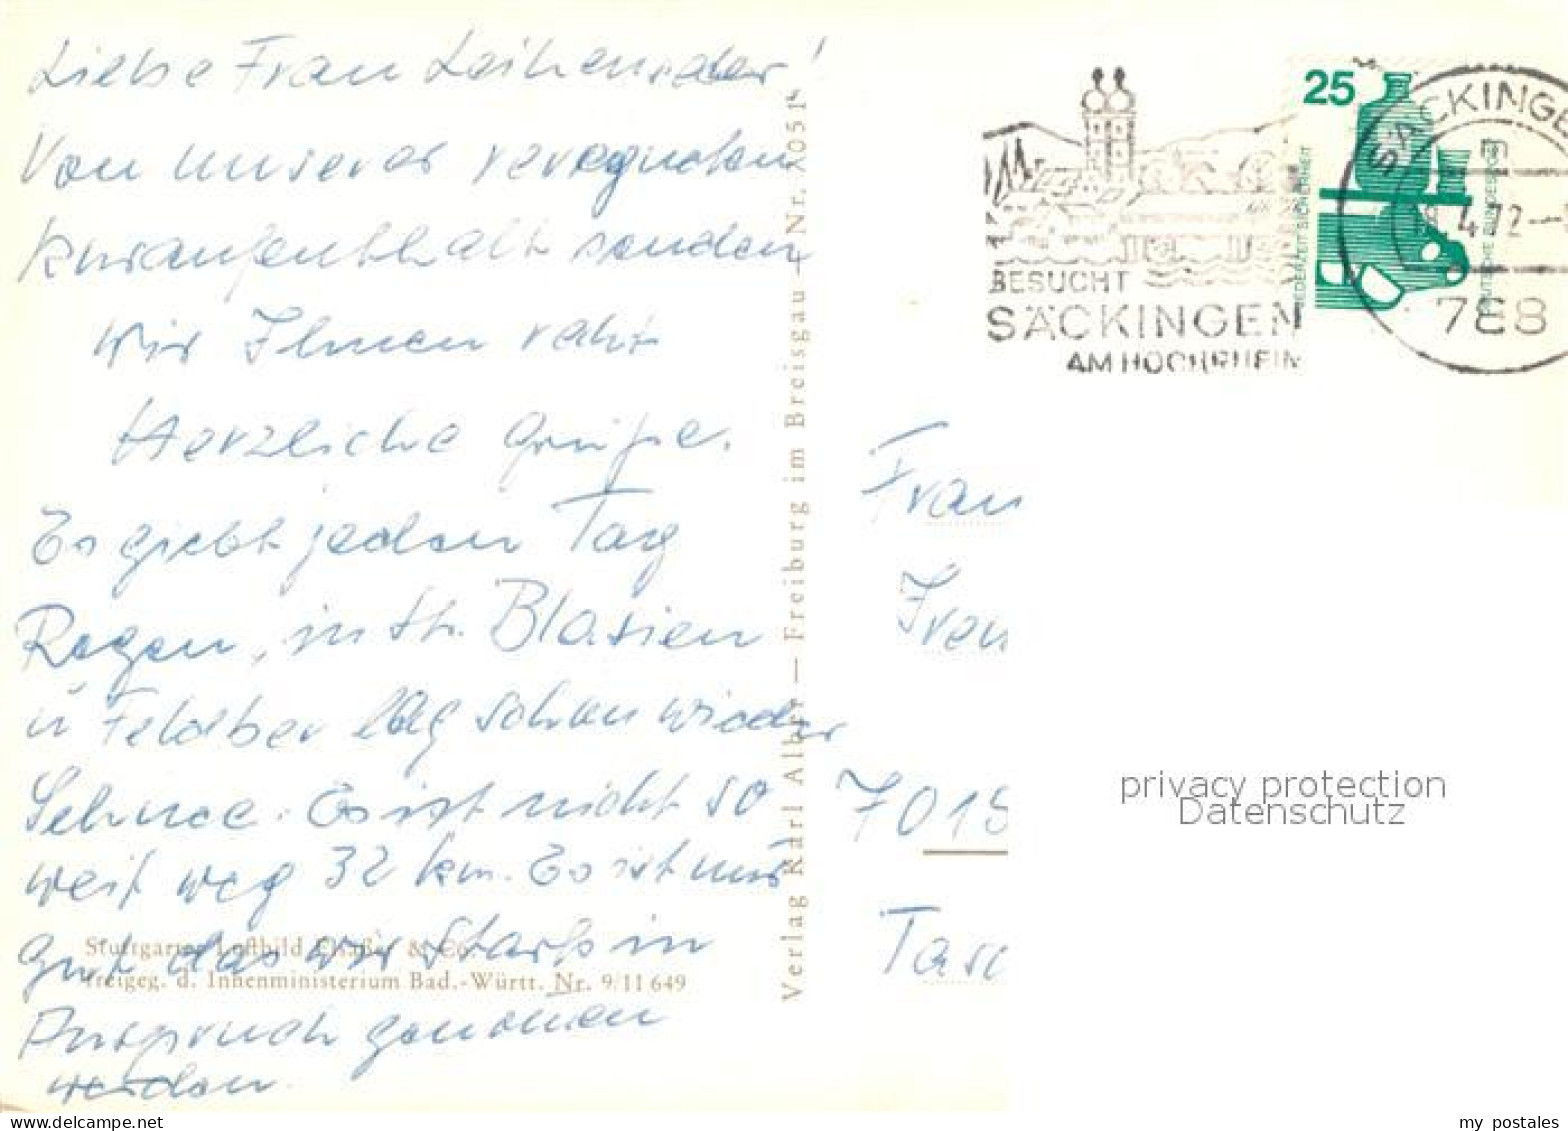 Liebe Frau Leihenseder!
Von unserer veregneten
Kuraufenthalt senden
wir Ihnen recht
Herzliche Grüße.
Es giebt jeden Tag
Regen, in St. Blasien
u Feldber lag schon wieder
Schnee. Es ist nicht so
weit weg 32 km. Es ist nur
gut das wir Stark in
Anspruch genomen
werden.
Stuttgarter Luftbild Elsäßer & Co.
Freigeg. d. Innenministerium Bad.-Württ. Nr. 9/11649
Verlag Karl Alber — Freiburg im Breisgau — Nr. 2051
BESUCHT
SÄCKINGEN
AM HOCHRHEIN
25
JEDERZEIT SICHERHEIT
DEUTSCHE BUNDESPOST
SÄCKINGE
4.72
788
Frau
7015
privacy protection
Datenschutz
www.delcampe.net
my_postales